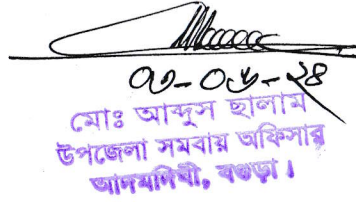 ০৩-০৬-২৪
মোঃ আব্দুস ছালাম
উপজেলা সমবায় অফিসার
আদমদিঘী, বগুড়া।